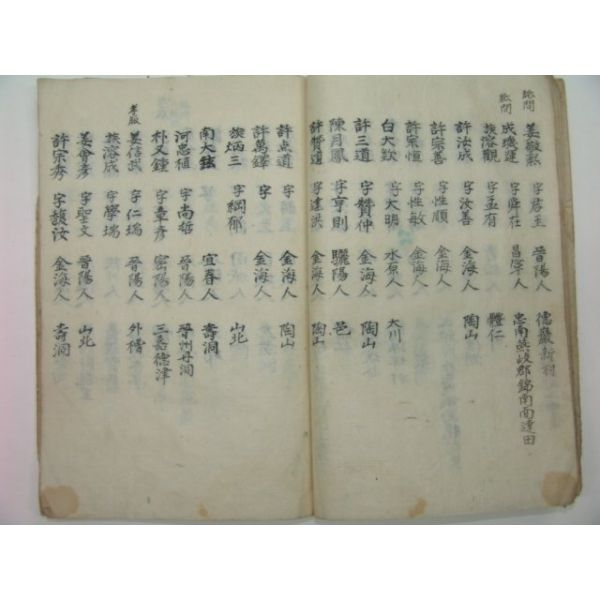 姜敏熙 字彦玉 晉陽人 德巖新村
成璣運 字舜在 昌寧人 忠南燕岐郡錦南面達田
族溶觀 字孟有 體仁
許汝成 字汝善 金海人 陶山
許宗善 字性順 金海人
許宗恒 字性敏 金海人
白大欽 字大明 水原人 大川
許三道 字贊仲 金海人 陶山
陳月鳳 字亨則 驪陽人 邑
許贊道 字達洪 金海人 陶山
許点道 字 金海人 陶山
許萬鐸 字 金海人
族炳三 字綱郁 山北
南大鉉 宜春人 壽洞
河忠植 字尚哲 晉陽人 晉州丹洞
朴又鍾 字章彦 密陽人 三嘉德津
孝服
姜信武 字仁瑞 晉陽人 外楮
族溶成 字學瑞
姜會彦 字聖文 晉陽人 山北
許宗秀 字馥汝 金海人 壽洞